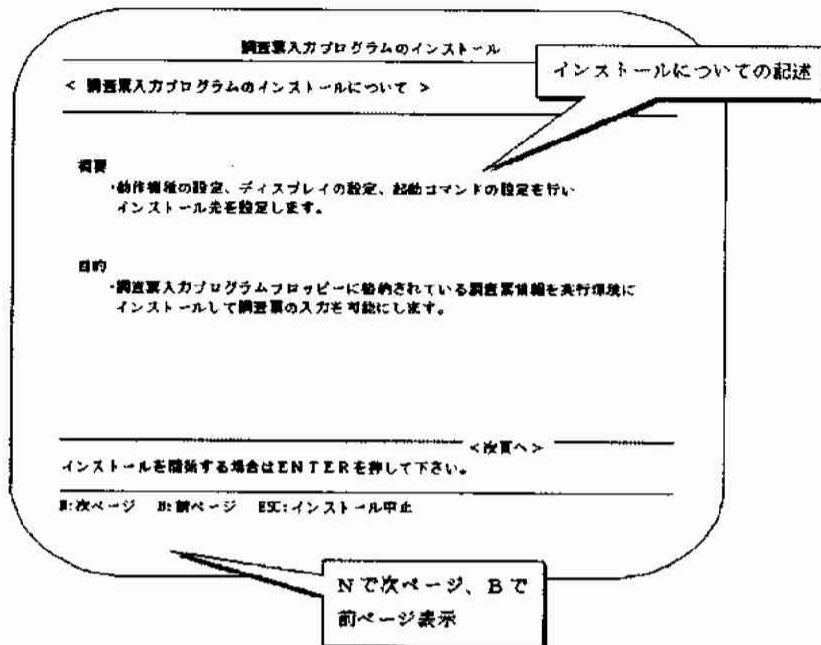 調査票入力プログラムのインストール
インストールについての記述
< 調査票入力プログラムのインストールについて >
概要
・動作機種の設定、ディスプレイの設定、起動コマンドの設定を行い
インストール先を設定します。
目的
・調査票入力プログラムフロッピーに格納されている調査票情報を実行環境に
インストールして調査票の入力を可能にします。
<次頁へ>
インストールを開始する場合はENTERを押して下さい。
N:次ページ B:前ページ ESC:インストール中止
Nで次ページ、Bで
前ページ表示